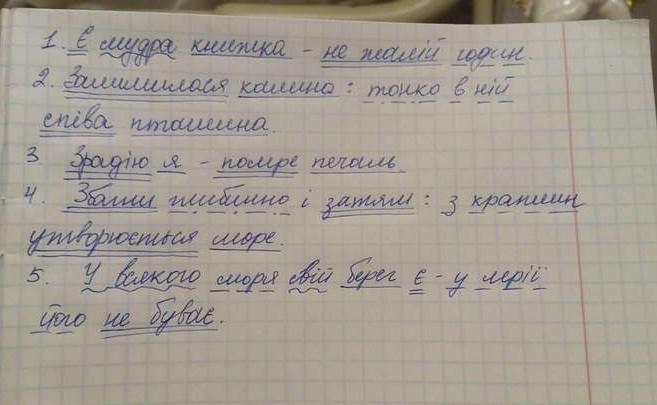 1. Є мудра книжка - не жалій годин.
2. Залишилася калина: тонко в ній
співа пташина.
3 Зрадію я - помре печаль
4. Збагни глибинно і затям: з краплин
утворюється море.
5. У всякого моря свій берег є - у мрії
його не буває.